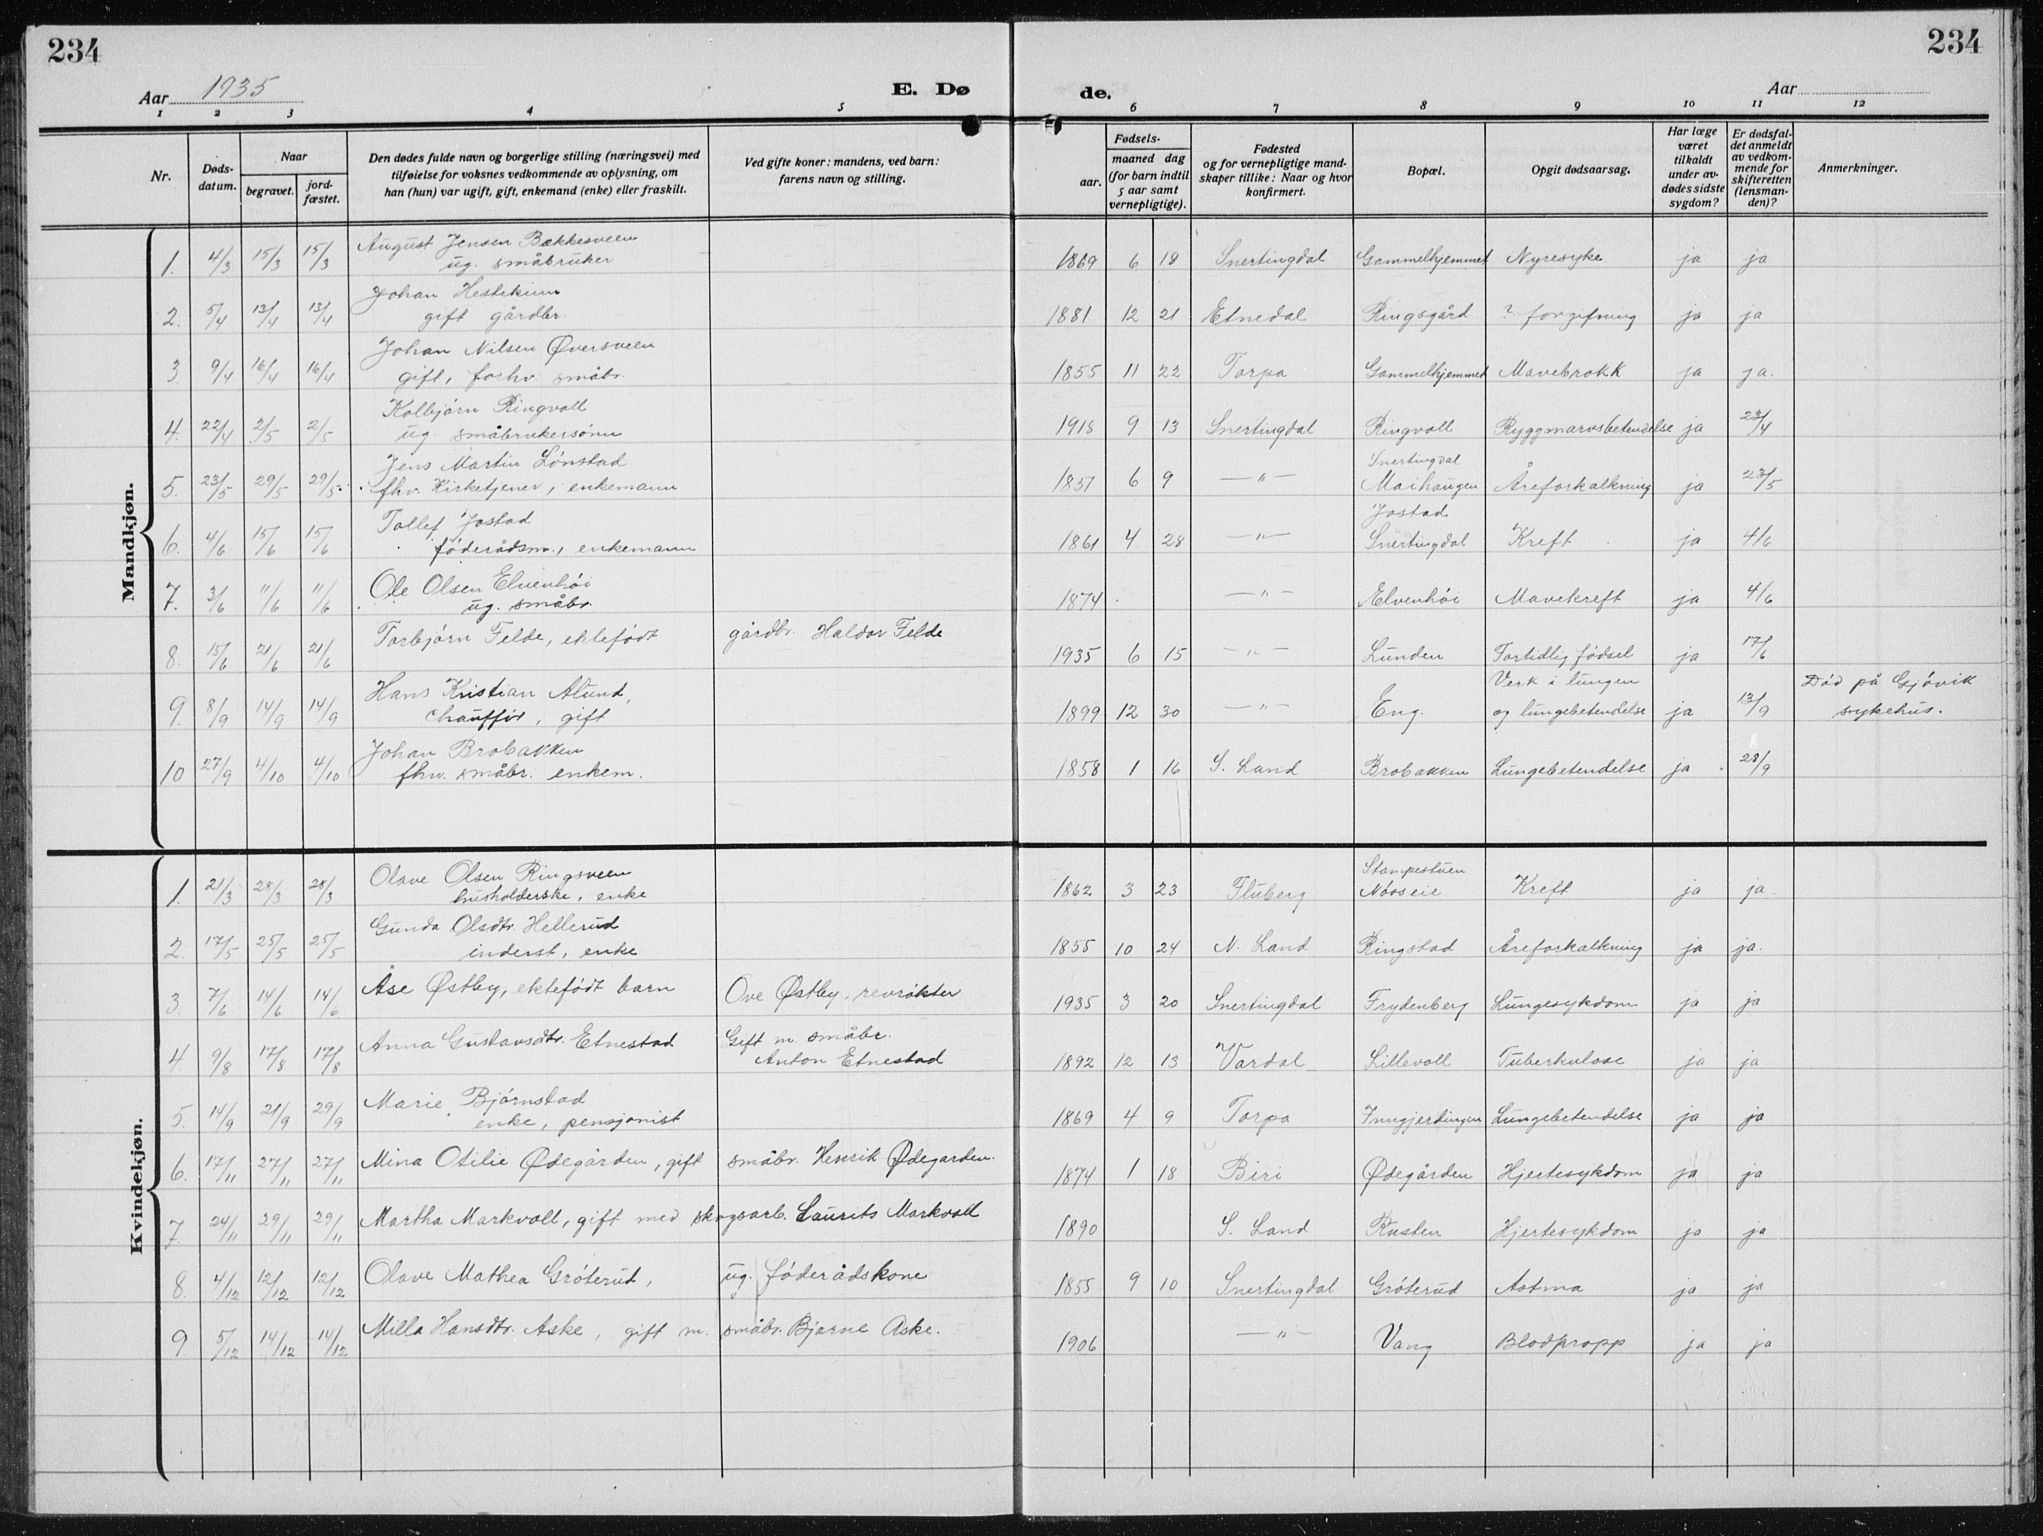 234
234
Aar 1935
E. Dø
de.
Aar
1 2 3 4 5 6 7 8 9 10 11 12
Nr.
Døds-
datum.
Naar
begravet.
jord-
fæstet.
Den dødes fulde navn og borgerlige stilling (næringsvei) med
tilføielse for voksnes vedkommende av oplysning, om
han (hun) var ugift, gift, enkemand (enke) eller fraskilt.
Ved gifte koner: mandens, ved barn:
farens navn og stilling.
Fødsels-
aar.
maaned dag
(for barn indtil
5 aar samt
vernepligtige).
Fødested
og for vernepligtige mand-
skaper tillike: Naar og hvor
konfirmert.
Bopæl.
Opgit dødsaarsag.
Har læge
været
tilkaldt
under av-
dødes sidste
sygdom?
Er dødsfal-
det anmeldt
av vedkom-
mende for
skifteretten
(lensman-
den)?
Anmerkninger.
Mandkjøn.
1. 4/3 15/3 15/3 August Jensen Bækkesveen
ug. småbruker 1869 6 18 Snertingdal Gammelhjemmet Nyresyke ja ja
2. 5/4 13/4 13/4 Johan Hestekinn
gift gårdbr. 1881 12 21 Etnedal Ringsgård ? forgifning ja ja
3. 9/4 16/4 16/4 Johan Nilsen Øversveen
gift, forhv. småbr. 1855 11 22 Torpa Gammelhjemmet Mavebrokk ja ja.
4. 22/4 2/5 2/5 Kolbjørn Ringvoll
ug. småbrukersønn 1918 9 13 Snertingdal Ringvoll Ryggmarvsbetendelse ja 23/4
5. 23/5 29/5 29/5 Jens Martin Lønstad
fhv. Kirketjener, enkemann 1857 6 9 —"— Snertingdal
Maihaugen Åreforkalkning ja 23/5
6. 4/6 15/6 15/6 Tollef Jostad
føderådsm., enkemann 1861 4 28 —"— Jostad
Snertingdal Kreft ja 4/6
7. 3/6 11/6 11/6 Ole Olsen Elvenhøi
ug. småbr. 1874 —"— Elvenhøi Mavekreft ja 4/6
8. 15/6 21/6 21/6 Torbjørn Felde, ektefødt gårdbr. Haldor Felde 1935 6 15 —"— Lunden Fortidlig fødsel ja 17/6
9. 8/9 14/9 14/9 Hans Kristian Alund,
chauffør, gift 1899 12 30 —"— Eng. Verk i lungen
og lungebetendelse ja 13/9 Død på Gjøvik
sykehus.
10 27/9 4/10 4/10 Johan Brobakken
fhv. småbr. enkem. 1858 1 16 S. Land Brobakken Lungebetendelse ja 28/9
Kvindekjøn.
1. 21/3 28/3 28/3 Olave Olsen Ringsveen
husholderske, enke 1862 3 23 Fluberg Stampestuen
Nøss eie Kreft ja ja.
2. 17/5 25/5 25/5 Gunda Olsdtr. Hellerud
inderst, enke 1855 10 24 N. Land Ringstad Åreforkalkning ja ja.
3. 7/6 14/6 14/6 Åse Østby, ektefødt barn Ove Østby, revrøkter 1935 3 20 Snertingdal Frydenberg Lungesykdom ja ja
4. 9/8 17/8 17/8 Anna Gustavsdtr. Etnestad Gift m. småbr.
Anton Etnestad 1892 12 13 Vardal Lillevoll Tuberkulose ja ja
5. 14/9 21/9 29/9 Marie Bjørnstad
enke, pensjonist 1869 4 9 Torpa Inngjerdingen Lungebetendelse ja ja
6. 17/11 27/11 27/11 Mina Otilie Ødegården, gift småbr. Henrik Ødegarden. 1874 1 18 Biri Ødegården Hjertesykdom ja ja
7. 24/11 29/11 29/11 Martha Markvoll, gift med skogsarb. Laurits Markvoll 1890 S. Land Rusten Hjertesykdom ja ja
8. 4/12 12/12 12/12 Olave Mathea Grøterud, ug. føderådskone 1855 9 10 Snertingdal Grøterud Astma ja ja
9. 5/12 14/12 14/12 Milla Hansdtr. Aske, gift m. småbr. Bjarne Aske. 1906 —"— Vang Blodpropp ja ja